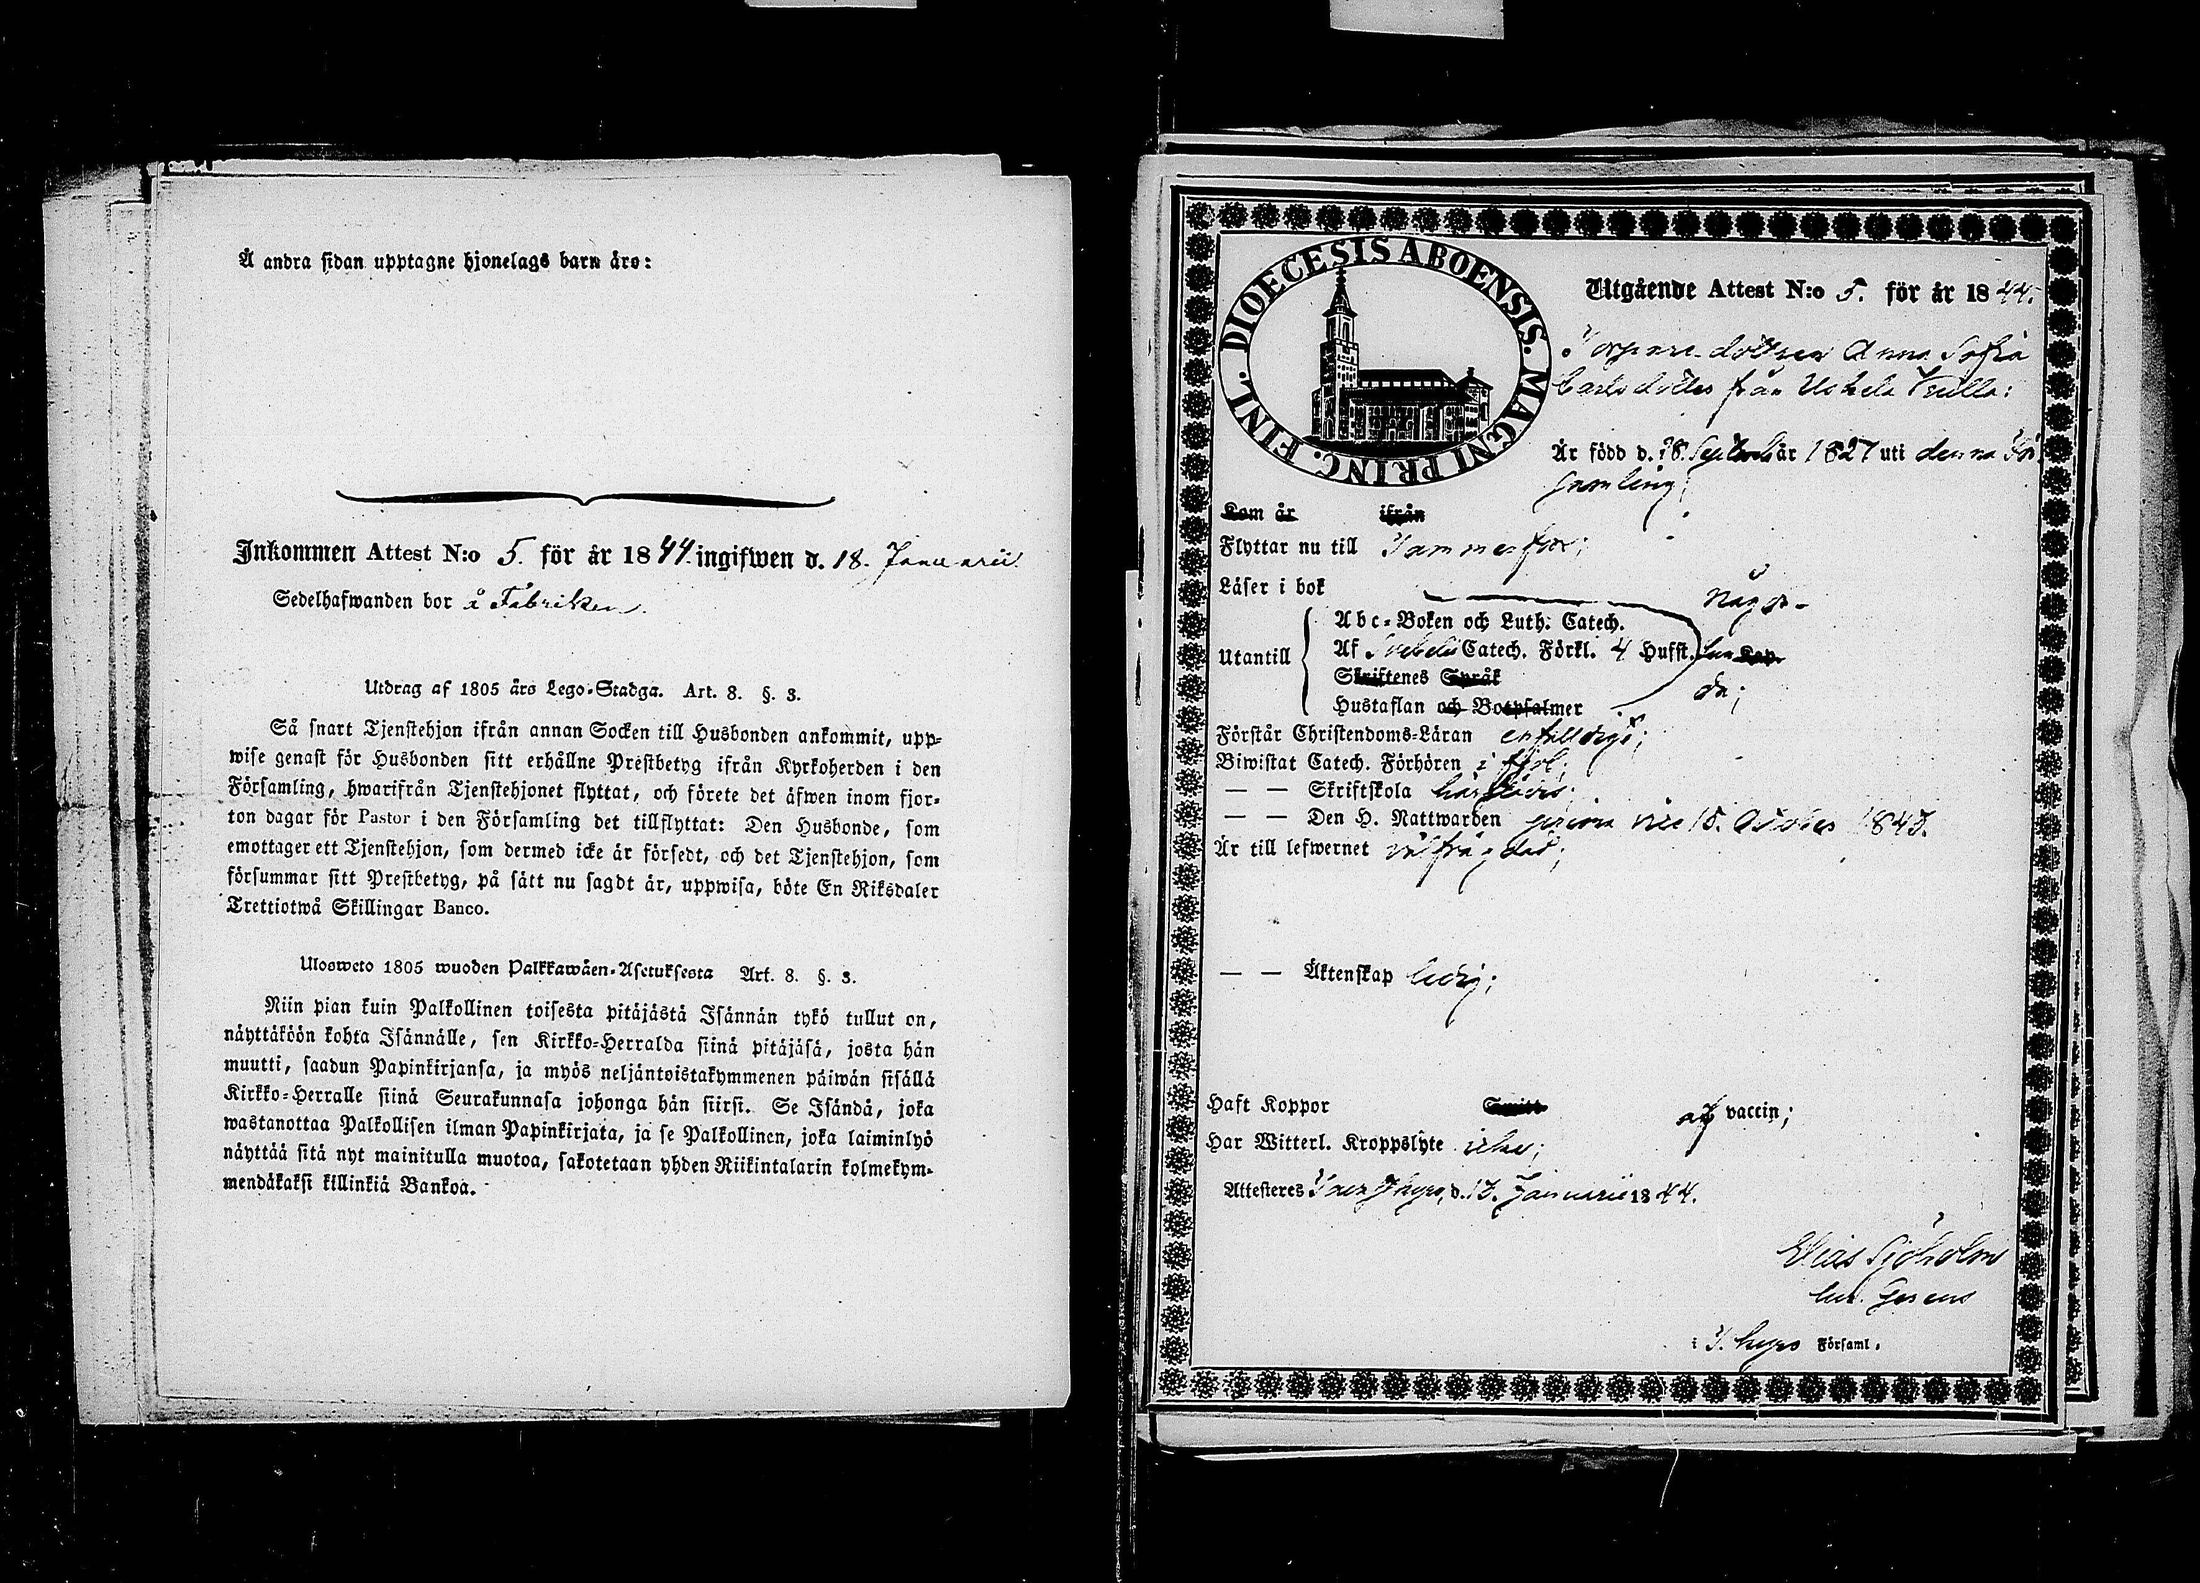 Å andra sidan upptagne hjonelags barn äro:
Inkommen Attest N:o 5. för år 1844. ingifwen d. 18. Januarii.
Sedelhafwanden bor å Fabriken.
Utdrag af 1805 års Lego-Stadga. Art. 8. §. 3.
Så snart Tjenstehjon ifrån annan Socken till Husbonden ankommit, upp-
wise genast för Husbonden sitt erhållne Prestbetyg ifrån Kyrkoherden i den
Församling, hwarifrån Tjenstehjonet flyttat, och förete det äfwen inom fjor-
ton dagar för Pastor i den Församling det tillflyttat: Den Husbonde, som
emottager ett Tjenstehjon, som dermed icke är försedt, och det Tjenstehjon, som
försummar sitt Prestbetyg, på sätt nu sagdt är, uppwisa, böte En Riksdaler
Trettiotwå Skillingar Banco.
Ulosweto 1805 wuoden Palkkawäen-Asetuksesta Art. 8. §. 3.
Niin pian kuin Palkollinen toisesta pitäjästä Isännän tykö tullut on,
näyttäköön kohta Isännälle, sen Kirkko-Herralda siinä pitäjäsä, josta hän
muutti, saadun Papinkirjansa, ja myös neljäntoistakymmenen päiwän sisällä
Kirkko-Herralle siinä Seurakunnasa johonga hän siirsi. Se Isändä, joka
wastanottaa Palkollisen ilman Papinkirjata, ja se Palkollinen, joka laiminlyö
näyttää sitä nyt mainitulla muotoa, sakotetaan yhden Riikintalarin kolmekym-
mendäkaksi killinkiä Bankoa.
DIOECESIS ABOENSIS. MAGNI PRINC. FINL.
Utgående Attest N:o 5. för år 1844.
Torpare dottren Anna Sofia
Carlsdotter från Uskela Trulla:
Är född d. 28. Septembr år 1827 uti denna För-
samling;
Kom år ifrån
Flyttar nu till Tammerfors;
Läser i bok någor-
Abc-Boken och Luth. Catech.
Utantill Af Svebelii Catech. Förkl. 4 Hufst. lun Kap.
Skriftenes Språk da;
Hustaflan och Botpsalmer
Förstår Christendoms-Läran enfaldigt;
Biwistat Catech. Förhören i fjol;
— — Skriftskola härstädes;
— — Den H. Nattwarden prima vice 15. October 1843.
Är till lefwernet välfrägdad;
— — Äktenskap ledig;
Haft Koppor Smitt af vaccin;
Har Witterl. Kroppslyte icke;
Attesteres Tavastkyro, d. 13. Januarii 1844.
Elias Sjöholm
Cur. Gerens
i T. kyro Församl.